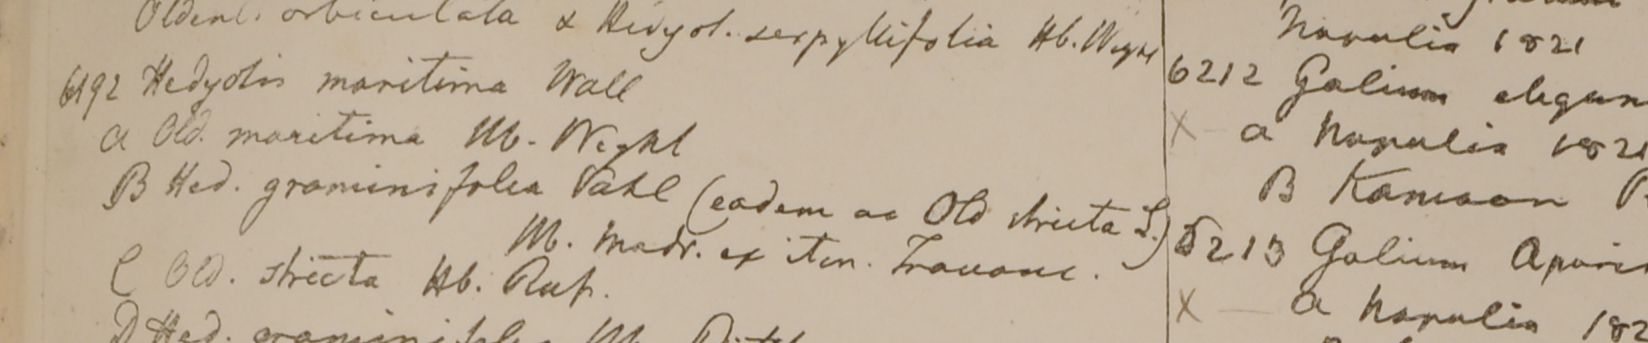 Oldenl. orbiculata & Hedyot. serpyllifolia Hb. Wight
6192 Hedyotis maritima Wall
a Old. maritima Hb. Wight
B Hed. graminifolia Vahl (eadem ac Old stricta L.)
Hb. Madr. ex itin. Travanc.
C Old. stricta Hb. Rup.
D Hed. graminifolia Hb.
Napalia 1821
6212 Galium elegan
X a Napalia 1821
B Kamaon
6213 Galium Apari
X — a Napalia 182